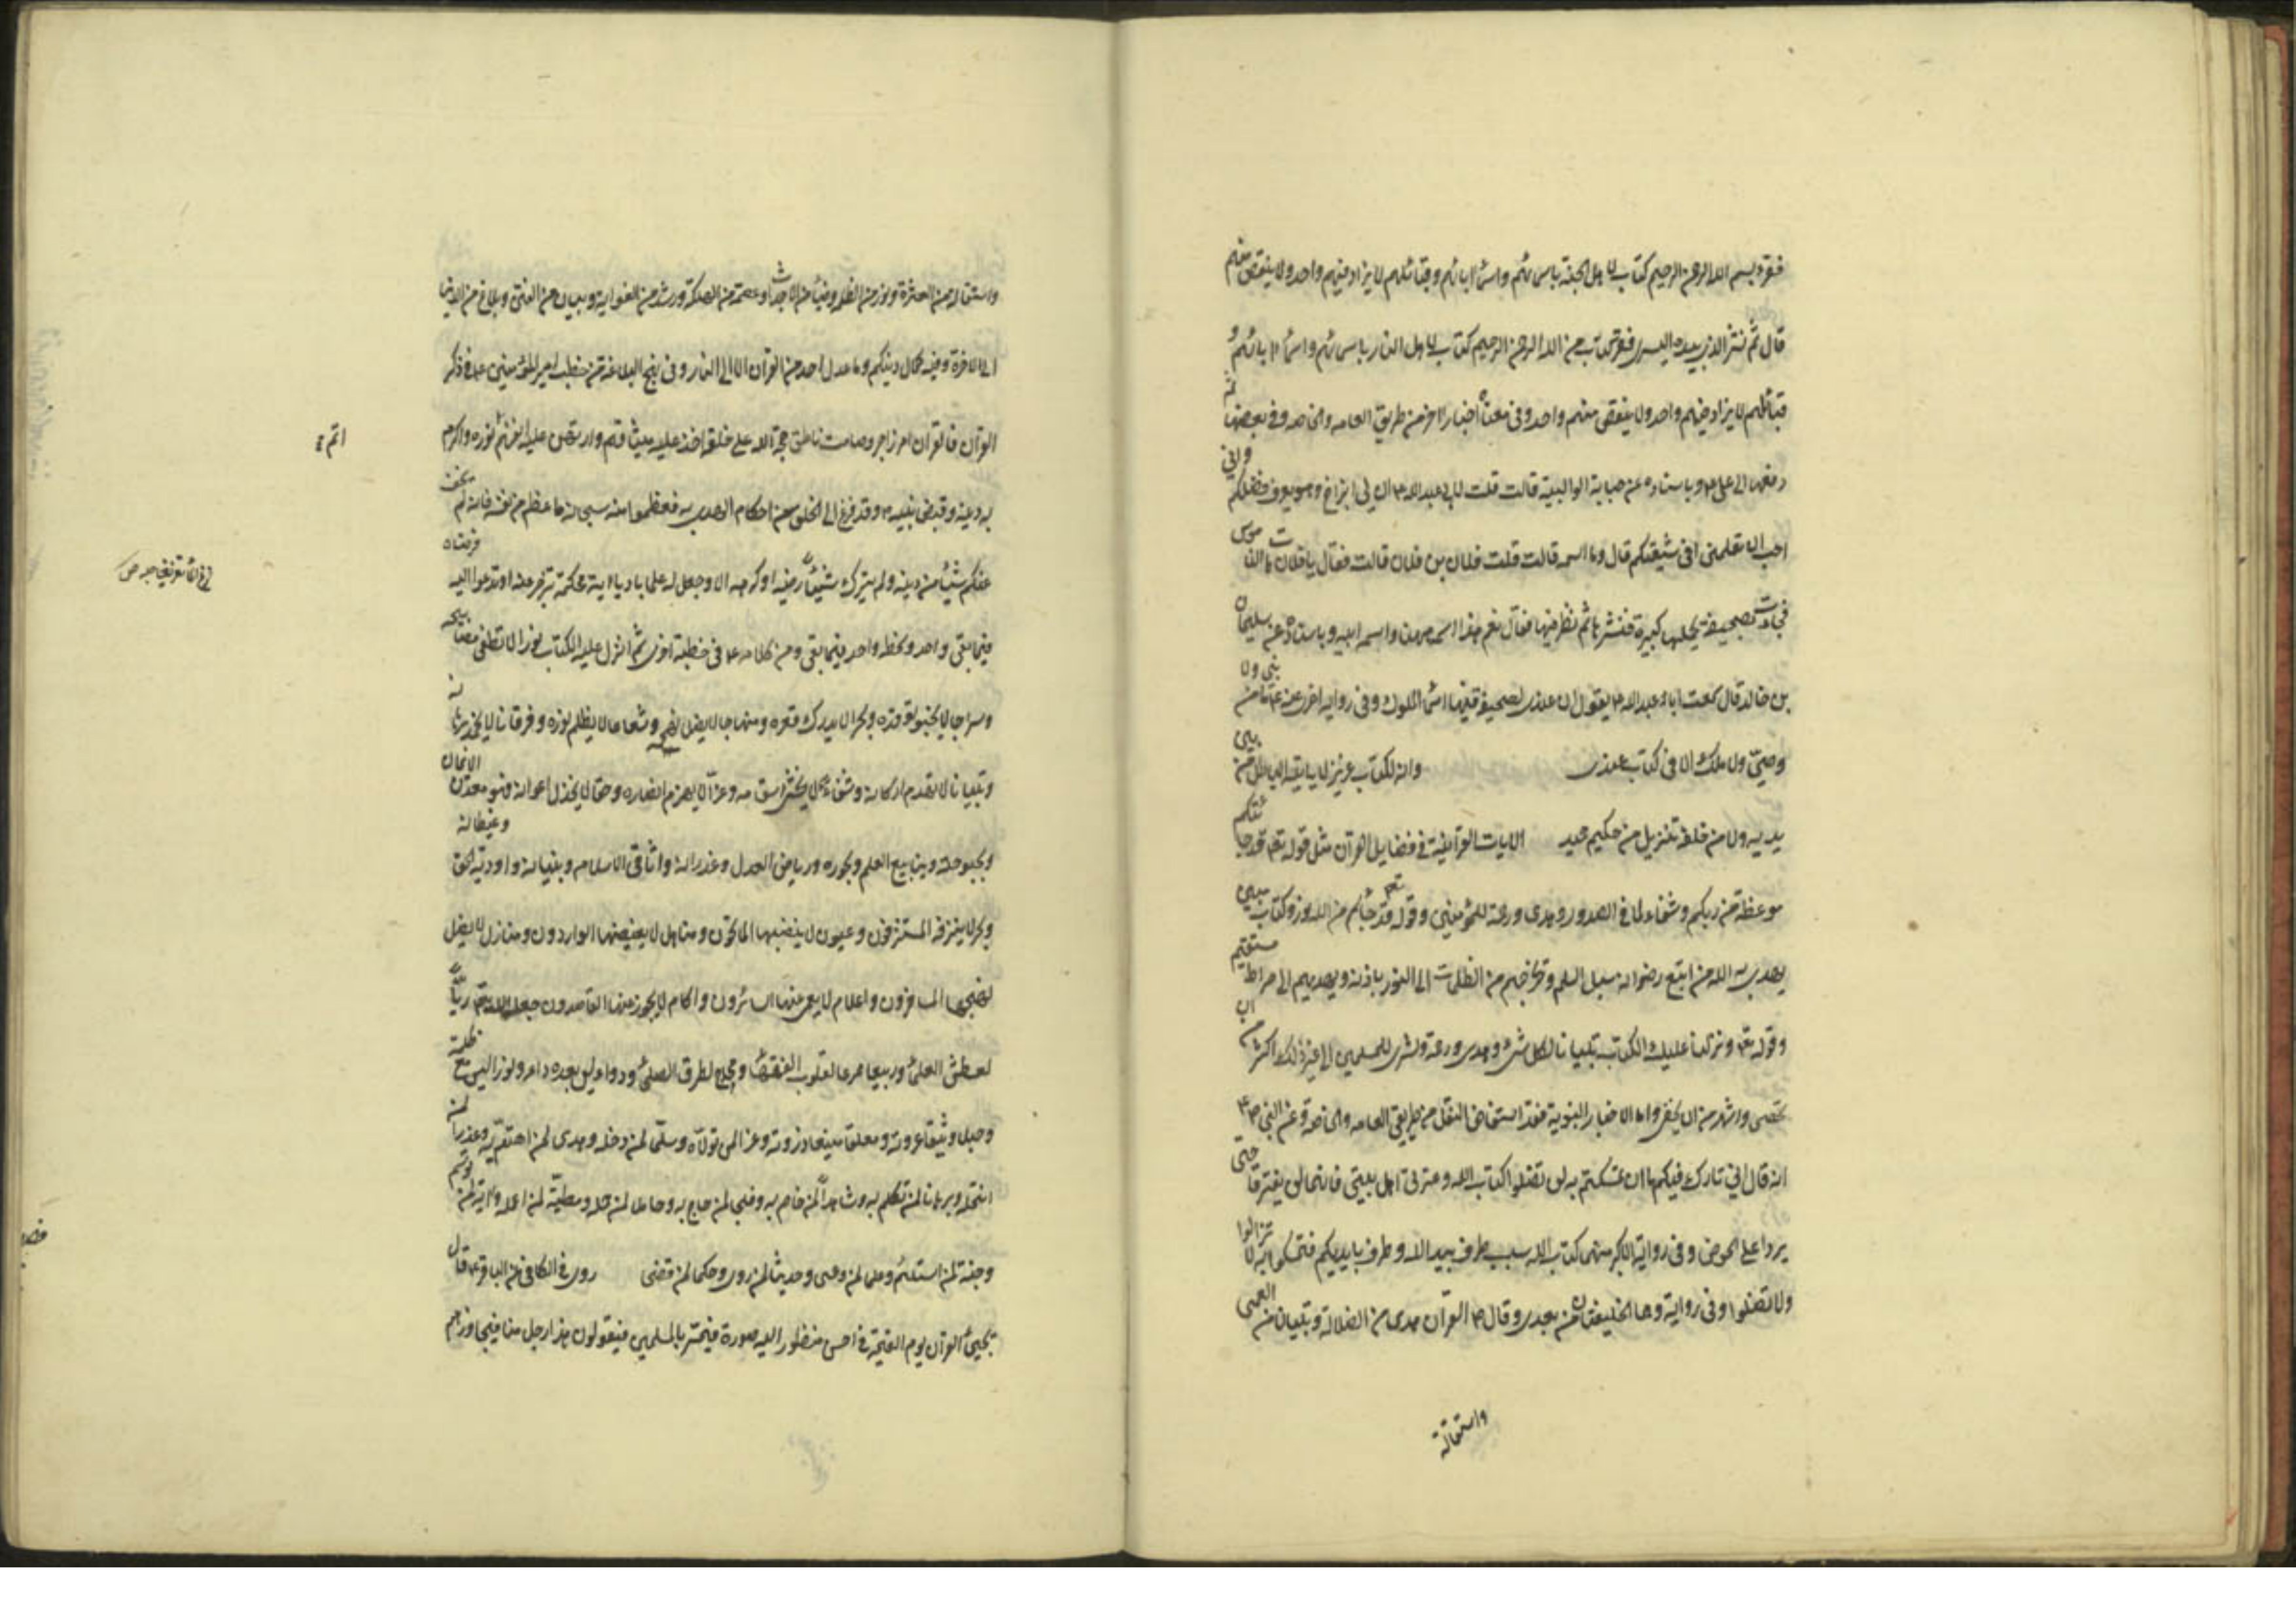 فقرء بسم الله الرحمن الرحيم كتاب لاهل الجنة باسمائهم واسماء ابائهم وقبائلهم لا يزاد فيهم واحد ولا ينقص منهم
قال ثم نشر الذي بيده اليسرى فقرء كتاب من الله الرحمن الرحيم كتاب لاهل النار باسمائهم واسماء ابائهم و
قبائلهم لا يزاد فيهم واحد ولا ينقص منهم واحد وفي معناه اخبار اخر من طريق العامه والخاصه وفي بعضها انه
دفعها الى علي ع وباسناده عن حبابة الوالبية قالت قلت لابي عبد الله ع ان لي ابن اخ وهو يعرف فضلكم واني
احب ان تعلمني افي شيعتكم قال وما اسمه قالت قلت فلان بن فلان قالت فقال يا فلانة هات الناموس
فجاءت بصحيفة تحملها كبيرة فنشرها ثم نظر فيها فقال نعم هذا اسمه ههنا واسم ابيه وباسناده عن سليمان
بن خالد قال سمعت ابا عبد الله ع يقول ان عندي لصحيفة فيها اسماء الملوك وفي رواية اخرى عنه ع ما من نبي ولا
وصي ولا ملك الا في كتاب عندي وانه لكتاب عزيز لا ياتيه الباطل من بين
يديه ولا من خلفه تنزيل من حكيم حميد الايات القرآنية في فضايل القرآن مثل قوله تع قد جائتكم
موعظة من ربكم وشفاء لما في الصدور وهدى ورحمة للمؤمنين وقوله تع قد جاءكم من الله نور وكتاب مبين
يهدي به الله من اتبع رضوانه سبل السلم ويخرجهم من الظلمات الى النور باذنه ويهديهم الى صراط مستقيم
وقوله تع ونزلنا عليك الكتاب تبيانا لكل شيء وهدى ورحمة وبشرى للمسلمين الى غير ذلك اكثر من ان
تحصى واشهر من ان يخفى واما الاخبار النبوية فقد استفاض النقل من طريقي العامه والخاصة عن النبي ص
انه قال اني تارك فيكم ما ان تمسكتم به لن تضلوا كتاب الله وعترتي اهل بيتي فانهما لن يفترقا حتى
يردا على الحوض وفي رواية الاكبر منهما كتاب الله سبب طرف بيد الله وطرف بايديكم فتمسكوا به لا تزالوا
ولا تضلوا وفي رواية وهما الخليفتان من بعدي وقال ص القرآن هدى من الضلالة وتبيان من العمى
واستقالة
واستقالة من العثرة ونور من الظلمة وضياء من الاجداث وعصمة من الهلكة ورشد من الغواية وبيان من الفتن وبلاغ من الدنيا
الى الاخرة وفيه كمال دينكم وما عدل احد من القرآن الا الى النار وفي نهج البلاغة من خطب امير المؤمنين ع في ذكر
القرآن فالقرآن امر زاجر وصامت ناطق حجة الله على خلقه اخذ عليه ميثاقهم وارتهن عليه انفسهم اتم نوره واكرم
به دينه وقبض نبيه ص وقد فرغ الى الخلق من احكام الهدى به فعظموا منه سبحانه ما عظم من نفسه فانه لم يخف
عنكم شيئا من دينه ولم يترك شيئا رضيه او كرهه الا وجعل له علما باديا واية محكمة تزجر عنه او تدعو اليه فرضاه
فيما بقي واحد وسخطه واحد فيما بقي ومن كلامه ع في خطبة اخرى ثم انزل عليه الكتاب نورا لا تطفى مصابيحه
وسراجا لا يخبو توقده وبحرا لا يدرك قعره ومنهاجا لا يضل نهجه وشعاعا لا يظلم نوره وفرقانا لا يخمد برهانه
وتبيانا لا تهدم اركانه وشفاء لا يخشى اسقامه وعزا لا يهزم انصاره وحقا لا يخذل اعوانه فهو معدن الايمان
وبحبوحته وينابيع العلم وبحوره ورياض العدل وغدرانه واثافي الاسلام وبنيانه واودية الحق وغيطانه
وبحر لا ينزفه المستنزفون وعيون لا ينضبها الماتحون ومناهل لا يغيضها الواردون ومنازل لا يضل
نهجها المسافرون واعلام لا يعمى عنها السائرون واكام لا يجوز عنها القاصدون جعله الله تع ريا
لعطش العلماء وربيعا لقلوب الفقهاء ومحاج لطرق الصلحاء ودواء ليس بعده داء ونورا ليس معه ظلمة
وحبلا وثيقا عروته ومعقلا منيعا ذروته وعزا لمن تولاه وسلما لمن دخله وهدى لمن ائتم به وعذرا لمن
انتحله وبرهانا لمن تكلم به وشاهدا لمن خاصم به وفلجا لمن حاج به وحاملا لمن حمله ومطية لمن اعمله واية لمن توسم
وجنة لمن استلئم وعلما لمن وعى وحديثا لمن روى وحكما لمن قضى روى في الكافي عن الباقر ع قال
يجيئ القرآن يوم القيمة في احسن منظور اليه صورة فيمر بالمسلمين فيقولون هذا رجل منا فيجاوزهم
اتم